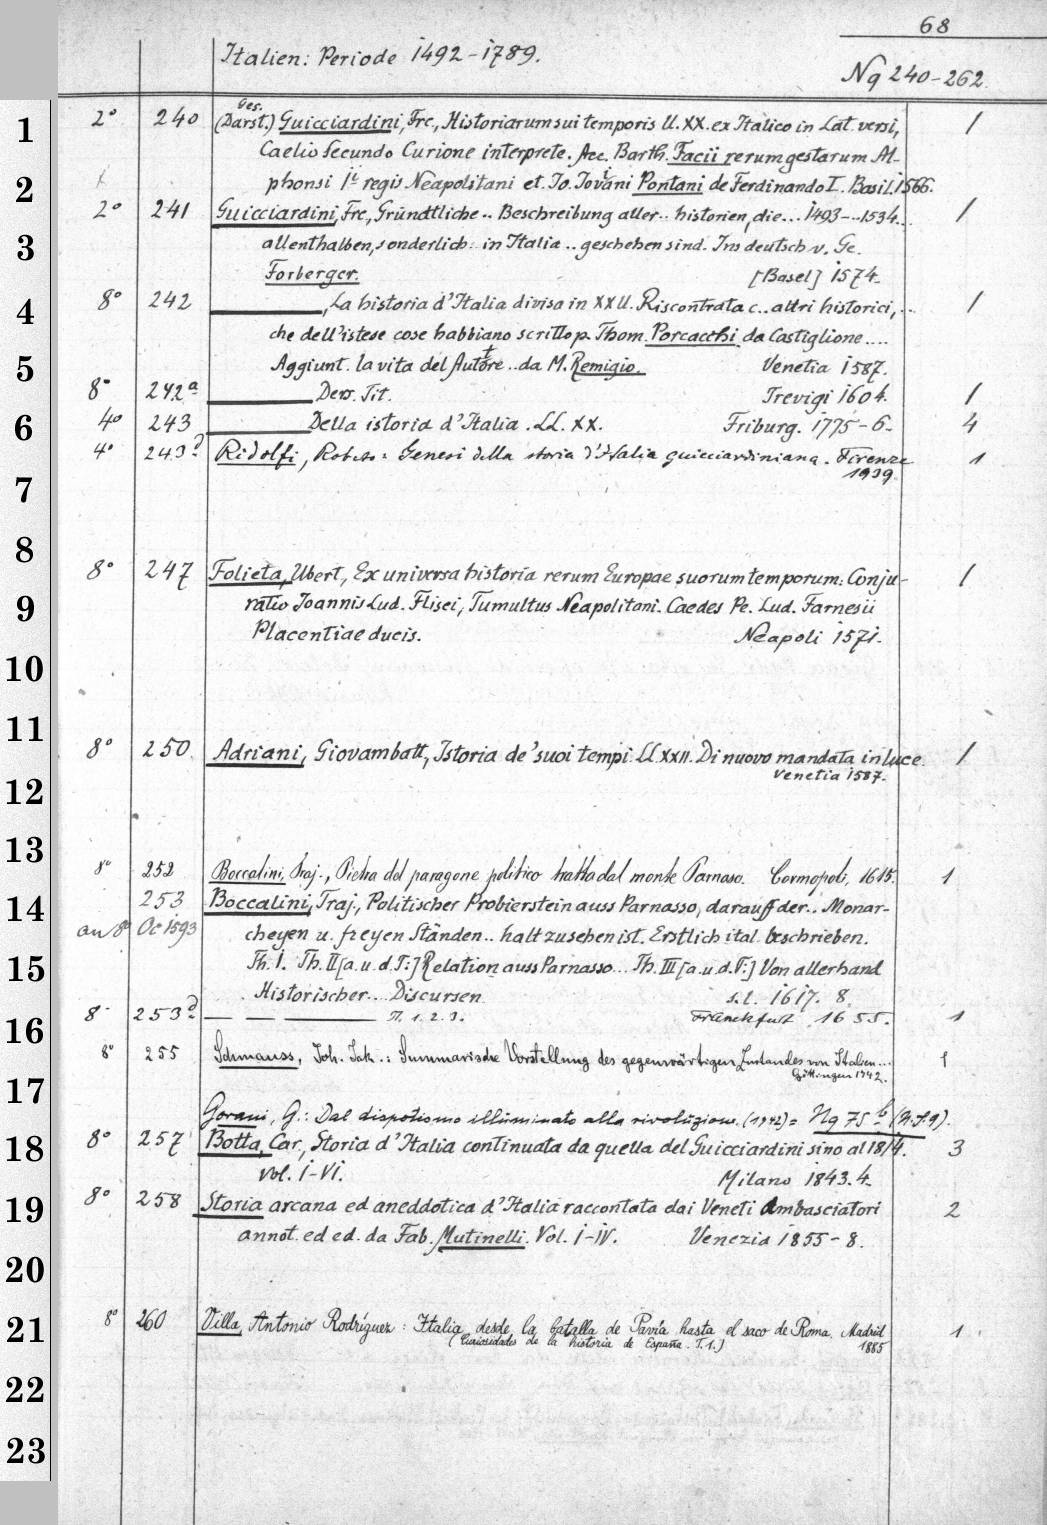 68
Italien: Periode 1492-1789.
Ng 240-262.
Ges.
2° 240 (Darst.) Guicciardini, Frc., Historiarum sui temporis ll. XX. ex Italico in Lat. versi, 1
Caelio Secundo Curione interprete. Acc. Barth. Facii rerum gestarum Al-
phonsi Ii regis Neapolitani et. Jo. Joviani Pontani de Ferdinando I. Basil. 1566.
2° 241 Guicciardini, Frc., Gründtliche .. Beschreibung aller .. historien, die ... 1493-..1534.. 1
allenthalben, sonderlich: in Italia .. geschehen sind. Ins deutsch v. Ge.
Forberger. [Basel] 1574.
8° 242 ———, La historia d'Italia divisa in XX ll. Riscontrata c.. altri historici, ... 1
che dell'istese cose habbiano scritto p. Thom. Porcacchi da Castiglione ....
Aggiunt. la vita del Autore .. da M. Remigio. Venetia 1587.
8° 242a ——— Ders. Tit. Trevigi 1604. 1
4° 243 ——— Della istoria d'Italia. LL. XX. Friburg. 1775-6. 4
4° 243d Ridolfi, Roberto: Genesi della storia d'Italia guicciardiniana. Firenze 1
1939.
8° 247 Folieta, Ubert, Ex universa historia rerum Europae suorum temporum: Conju- 1
ratio Joannis Lud. Flisci, Tumultus Neapolitani. Caedes Pe. Lud. Farnesii
Placentiae ducis. Neapoli 1571.
8° 250 Adriani, Giovambatt., Istoria de' suoi tempi. Ll. XXII. Di nuovo mandata in luce. 1
Venetia 1587.
8° 252 Boccalini, Traj., Pietra del paragone politico tratta dal monte Parnaso. Cormopoli, 1615. 1
253 Boccalini, Traj., Politischer Probierstein auss Parnasso, darauff der .. Monar-
an 8° Oc 1593 cheyen u. freyen Ständen .. halt zusehen ist. Erstlich ital. beschrieben.
Th. I. Th. II [a. u. d. T:] Relation auss Parnasso ... Th. III [a. u. d. T:] Von allerhand
Historischer ... Discursen s.l. 1617. 8.
8° 253d — — ——— Tl. 1. 2. 3. Franckfurt 1655. 1
8° 255 Schmauss, Joh. Jak.: Summarische Vorstellung des gegenwärtigen Zustandes von Italien ... 1
Göttingen 1742.
Gorani, G.: Dal dispotismo illuminato alla rivoluzione. (1942) = Ng 75 b (N.S. 9).
8° 257 Botta, Car., Storia d'Italia continuata da quella del Guicciardini sino al 1814. 3
Vol. I-VI. Milano 1843. 4.
8° 258 Storia arcana ed aneddotica d'Italia raccontata dai Veneti Ambasciatori 2
annot. ed ed. da Fab. Mutinelli. Vol. I-IV. Venezia 1855-8.
8° 260 Villa, Antonio Rodríguez: Italia desde la batalla de Pavía hasta el saco de Roma. Madrid 1
(Curiosidades de la historia de España. T. 1.) 1885
1
2
3
4
5
6
7
8
9
10
11
12
13
14
15
16
17
18
19
20
21
22
23